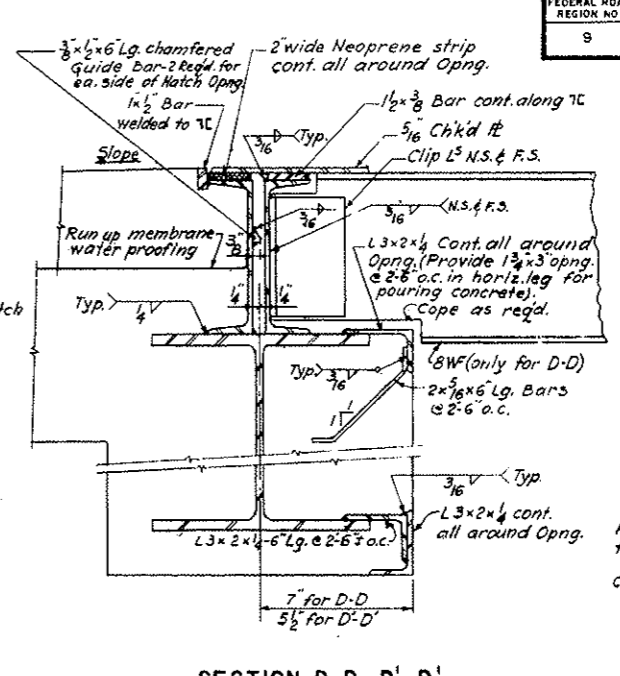 FEDERAL ROAD
REGION NO
9
3/8 x 1/2" x 6" Lg. chamfered
Guide Bar-2 Req'd. for
ea. side of Hatch Opng.
1 x 1/2" Bar
welded to
Slope
2" wide Neoprene strip
cont. all around Opng.
1 1/2 x 3/8 Bar cont. along
5/16" Ch'k'd PL
Clip Ls N.S. & F.S.
3/16 Typ.
3/16
3/16 N.S. & F.S.
Run up membrane
water proofing
3/8"
1/4" 1/4"
L 3 x 2 x 1/4 Cont. all around
Opng. (Provide 1 3/4" x 3" opng.
@ 2'-6" o.c. in horiz. leg for
pouring concrete).
Cope as req'd.
Typ. 1/4
8WF (only for D-D)
Typ. 3/16
2 x 5/16 x 6" Lg. Bars
@ 2'-6" o.c.
1
1
3/16 Typ.
L 3 x 2 x 1/4 cont.
all around Opng.
L 3 x 2 x 1/4 - 6" Lg. @ 2'-6"± o.c.
7" for D-D
5 1/2" for D'-D'
SECTION D-D, D'-D'